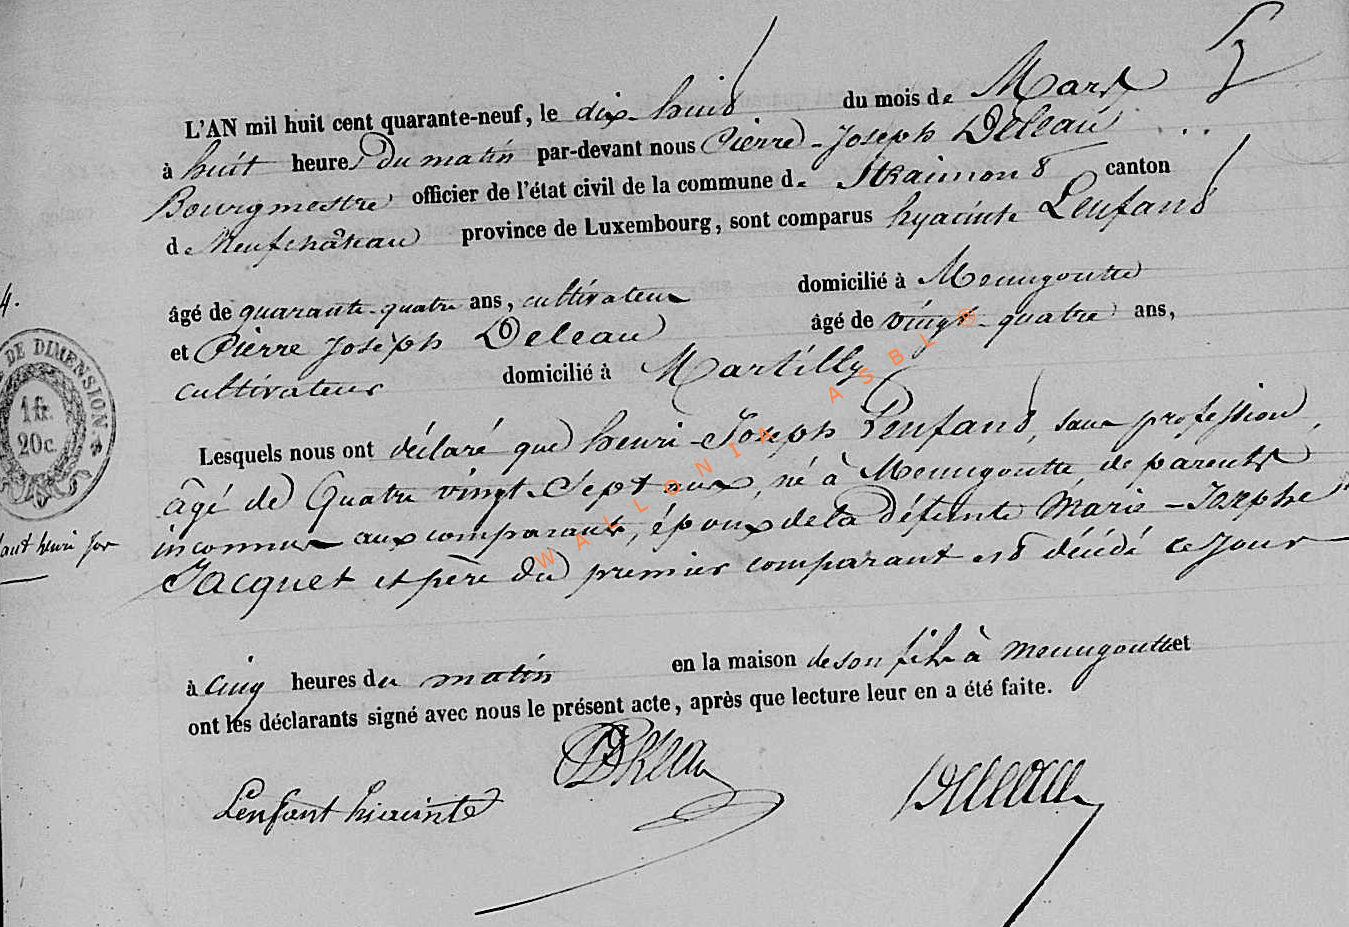 L'AN mil huit cent quarante-neuf, le dix-huit du mois de Mars
à huit heures du matin par-devant nous Pierre-Joseph Deleau
Bourgmestre officier de l'état civil de la commune de Straimont canton
de Neufchâteau province de Luxembourg, sont comparus hyacinte Lenfant
âgé de quarante-quatre ans, cultivateur domicilié à Menugoutte
et Pierre Joseph Deleau âgé de vingt-quatre ans,
cultivateur domicilié à Martilly
4.
DE DIMENSION
1 fr.
20c.
Lesquels nous ont déclaré que henri-Joseph Lenfant, sans profession,
âgé de Quatre vingt-Sept ans, né à Menugoutte, de parents
inconnus aux comparants, époux de la défunte Marie-Josephe
Jacquet et père du premier comparant est décédé ce jour
à cinq heures du matin en la maison de son fils à menugoutte et
ont les déclarants signé avec nous le présent acte, après que lecture leur en a été faite.
Lenfant hiacinte
Deleau
WALLONIA ASBL ©